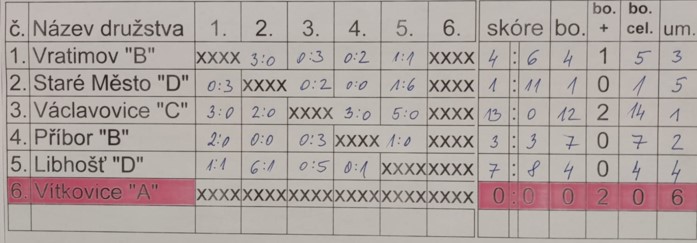 č. Název družstva 1. 2. 3. 4. 5. 6. skóre bo. bo. + bo. cel. um.
1. Vratimov "B" XXXX 3:0 0:3 0:2 1:1 XXXX 4 : 6 4 1 5 3
2. Staré Město "D" 0:3 XXXX 0:2 0:0 1:6 XXXX 1 : 11 1 0 1 5
3. Václavovice "C" 3:0 2:0 XXXX 3:0 5:0 XXXX 13 : 0 12 2 14 1
4. Příbor "B" 2:0 0:0 0:3 XXXX 1:0 XXXX 3 : 3 7 0 7 2
5. Libhošť "D" 1:1 6:1 0:5 0:1 XXXX XXXX 7 : 8 4 0 4 4
6. Vítkovice "A" XXXX XXXX XXXX XXXX XXXX XXXX 0 : 0 0 2 0 6